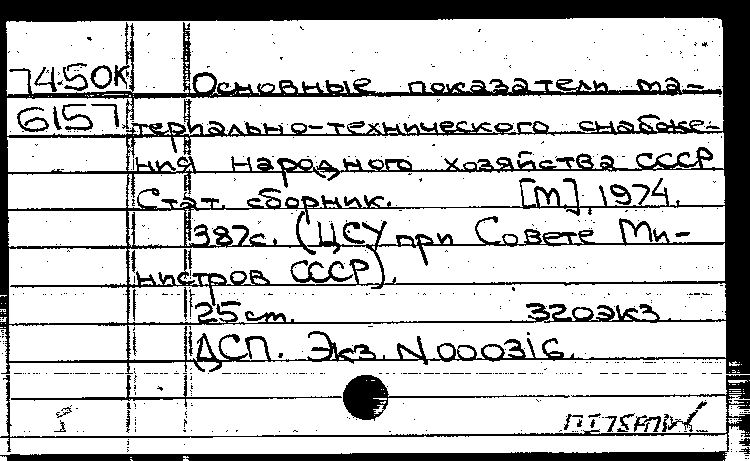 74-50К Основные показатели ма-
6157 териально-технического снабже-
ния народного хозяйства СССР
Стат. сборник. [М], 1974.
387с. (ЦСУ при Совете Ми-
нистров СССР).
25см. 320экз.
ДСП. Экз. N000316.